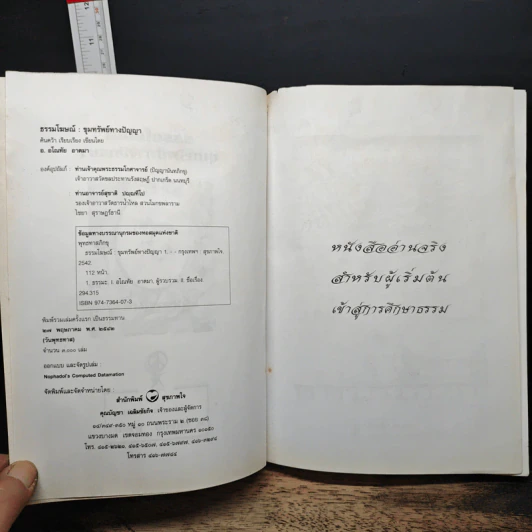 ธรรมโฆษณ์ : ขุมทรัพย์ทางปัญญา
ค้นคว้า เรียบเรียง เขียนโดย
อ. อโณทัย อาตมา
องค์อุปถัมภ์ : ท่านเจ้าคุณพระธรรมโกศาจารย์ (ปัญญานันทภิกขุ)
เจ้าอาวาสวัดชลประทานรังสฤษฎ์ ปากเกร็ด นนทบุรี
ท่านอาจารย์สุชาติ ปญฺญทีโป
รองเจ้าอาวาสวัดธารน้ำไหล สวนโมกขพลาราม
ไชยา สุราษฎร์ธานี
ข้อมูลทางบรรณานุกรมของหอสมุดแห่งชาติ
พุทธทาสภิกขุ
ธรรมโฆษณ์ ขุมทรัพย์ทางปัญญา 1. - - กรุงเทพฯ : สุขภาพใจ,
2542.
112 หน้า.
1. ธรรมะ. I. อโณทัย อาตมา, ผู้รวบรวม. II. ชื่อเรื่อง.
294.315
ISBN 974-7364-07-3
พิมพ์รวมเล่มครั้งแรก เป็นธรรมทาน
๒๗ พฤษภาคม พ.ศ. ๒๕๔๒
(วันพุทธทาส)
จำนวน ๓,๐๐๐ เล่ม
ออกแบบ และจัดรูปเล่ม :
Nophadol's Computed Datamation
จัดพิมพ์และจัดจำหน่ายโดย :
สำนักพิมพ์ สุขภาพใจ
คุณบัญชา เฉลิมชัยกิจ เจ้าของและผู้จัดการ
หมู่ ๑๐ ถนนพระราม ๒ (ซอย ๓๘)
แขวงบางมด เขตจอมทอง กรุงเทพมหานคร ๑๐๑๕๐
โทร.
โทรสาร
หนังสืออ่านจริง
สำหรับผู้เริ่มต้น
เข้าสู่การศึกษาธรรม
12
11